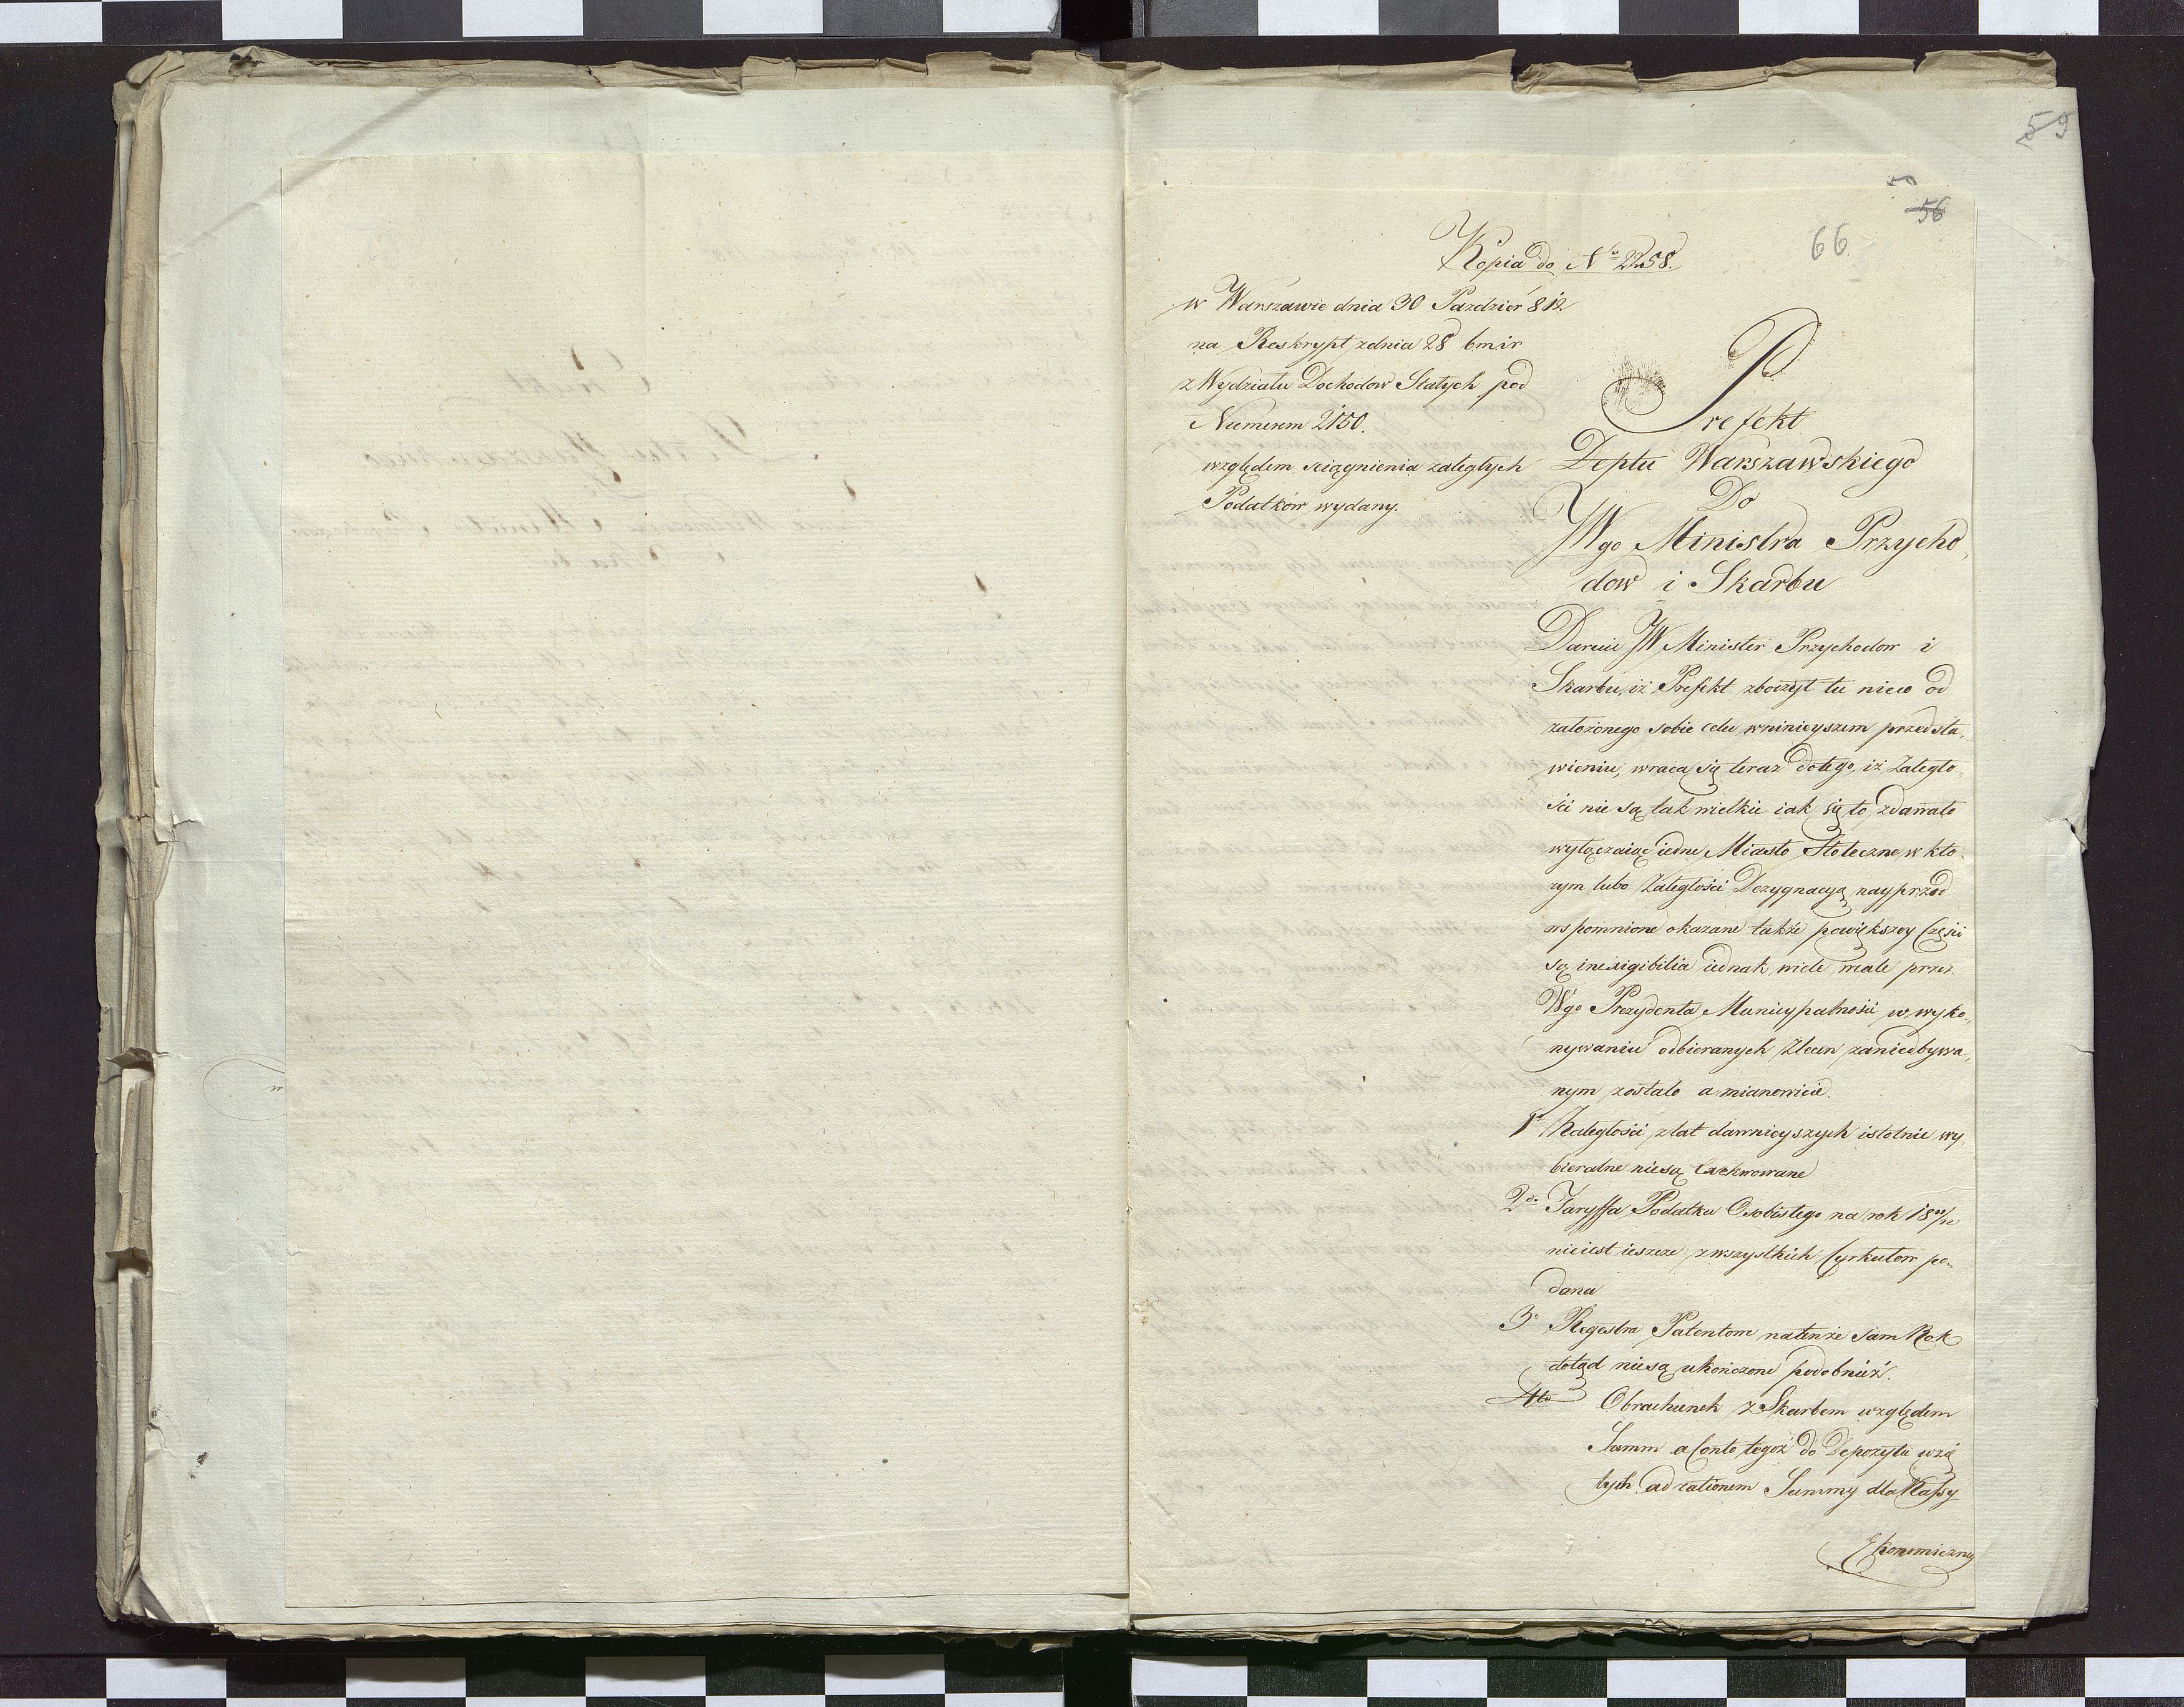 59
50
56
66
Kopia do No 2258.
w Warszawie dnia 30 Pazdzier 812
na Reskrypt zdnia 28 bmir
z Wydziału Dochodow Stałych pod
Numerem 2150.
względem sciągnienia zaległych
Podatków wydany.
Prefekt
Deptu Warszawskiego
Do
JWgo Ministra Przycho,
dow i Skarbu
Daruie JW Minister Przychodow i
Skarbu, iż Prefekt zboczył tu nieco od
założonego sobie celu wninieyszem przedsta,
wieniu, wraca się teraz dotego, iż Zaległo,
ści nie są tak wielkie iak się to zdawało
wyłączaiąc iedne Miasto Stołeczne, w kto,
rym lubo Zaległości Dezygnacyą nayprzód
wspomnione okazane także powiększey Części
są inexigibilia iednak wiele wcale przez
Wgo Prezydenta Municypalności w wyko,
nywaniu odbieranych Zlecen zaniedbywa,
nym zostało a mianowicie.
1o Zaległości zlat dawnieyszych istotnie wy,
bieralne niesą exekwowane
2o Taryffa Podatku Osobistego na rok 1811/12
nieiest ieszcze zwszystkich Cyrkułow po,
dana
3o Regestra Patentowe natenże sam Rok
dotąd niesą ukończone podobnież.
4to Obrachunek z Skarbem względem
Summ a Conto tegoż do Depozytu wzię
tych ad rationem Summy dla Kassy
Ekonomiczney